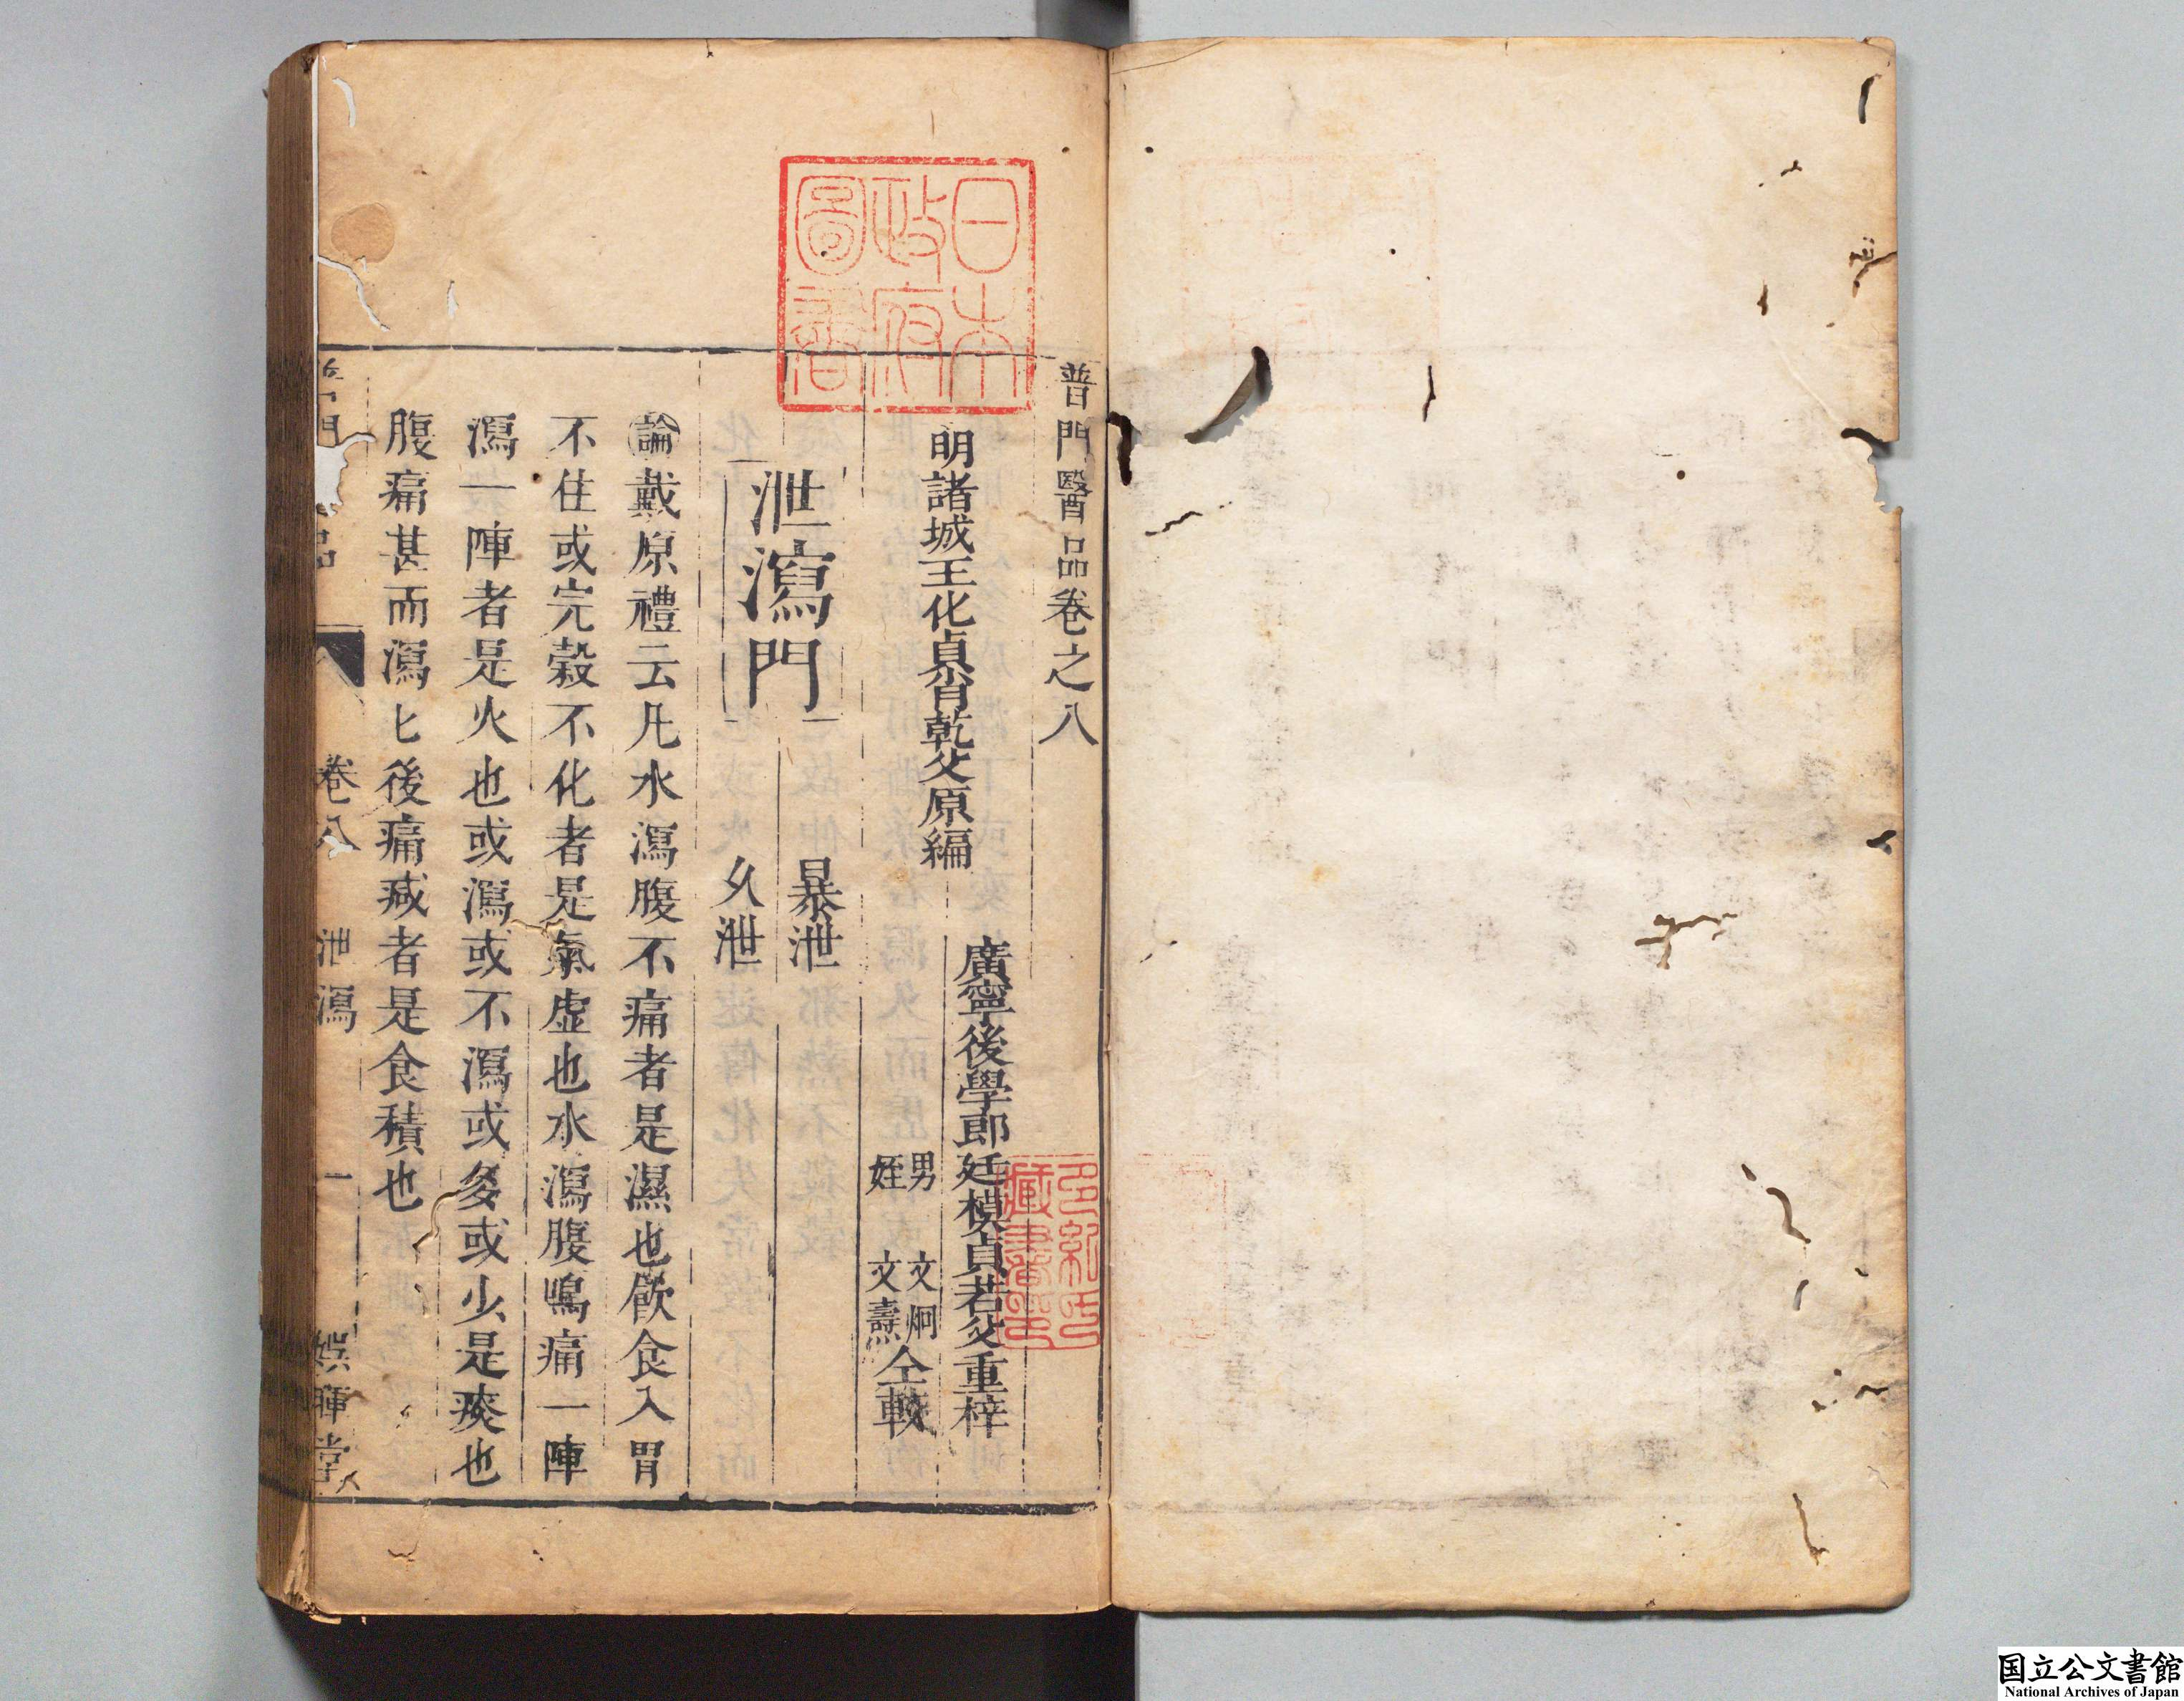 普門醫品卷之八
明諸城王化貞肖乾父原編
廣寧後學郎廷模貞若父重梓
男 文炯
姪 文燾
仝較
泄瀉門
暴泄
久泄
論戴原禮云凡水瀉腹不痛者是濕也飲食入胃
不住或完穀不化者是氣虛也水瀉腹鳴痛一陣
瀉一陣者是火也或瀉或不瀉或多或少是痰也
腹痛甚而瀉匕後痛减者是食積也
卷八
泄瀉
一
娯暉堂
日本
政府
圖書
多紀氏
藏書印
国立公文書館
National Archives of Japan